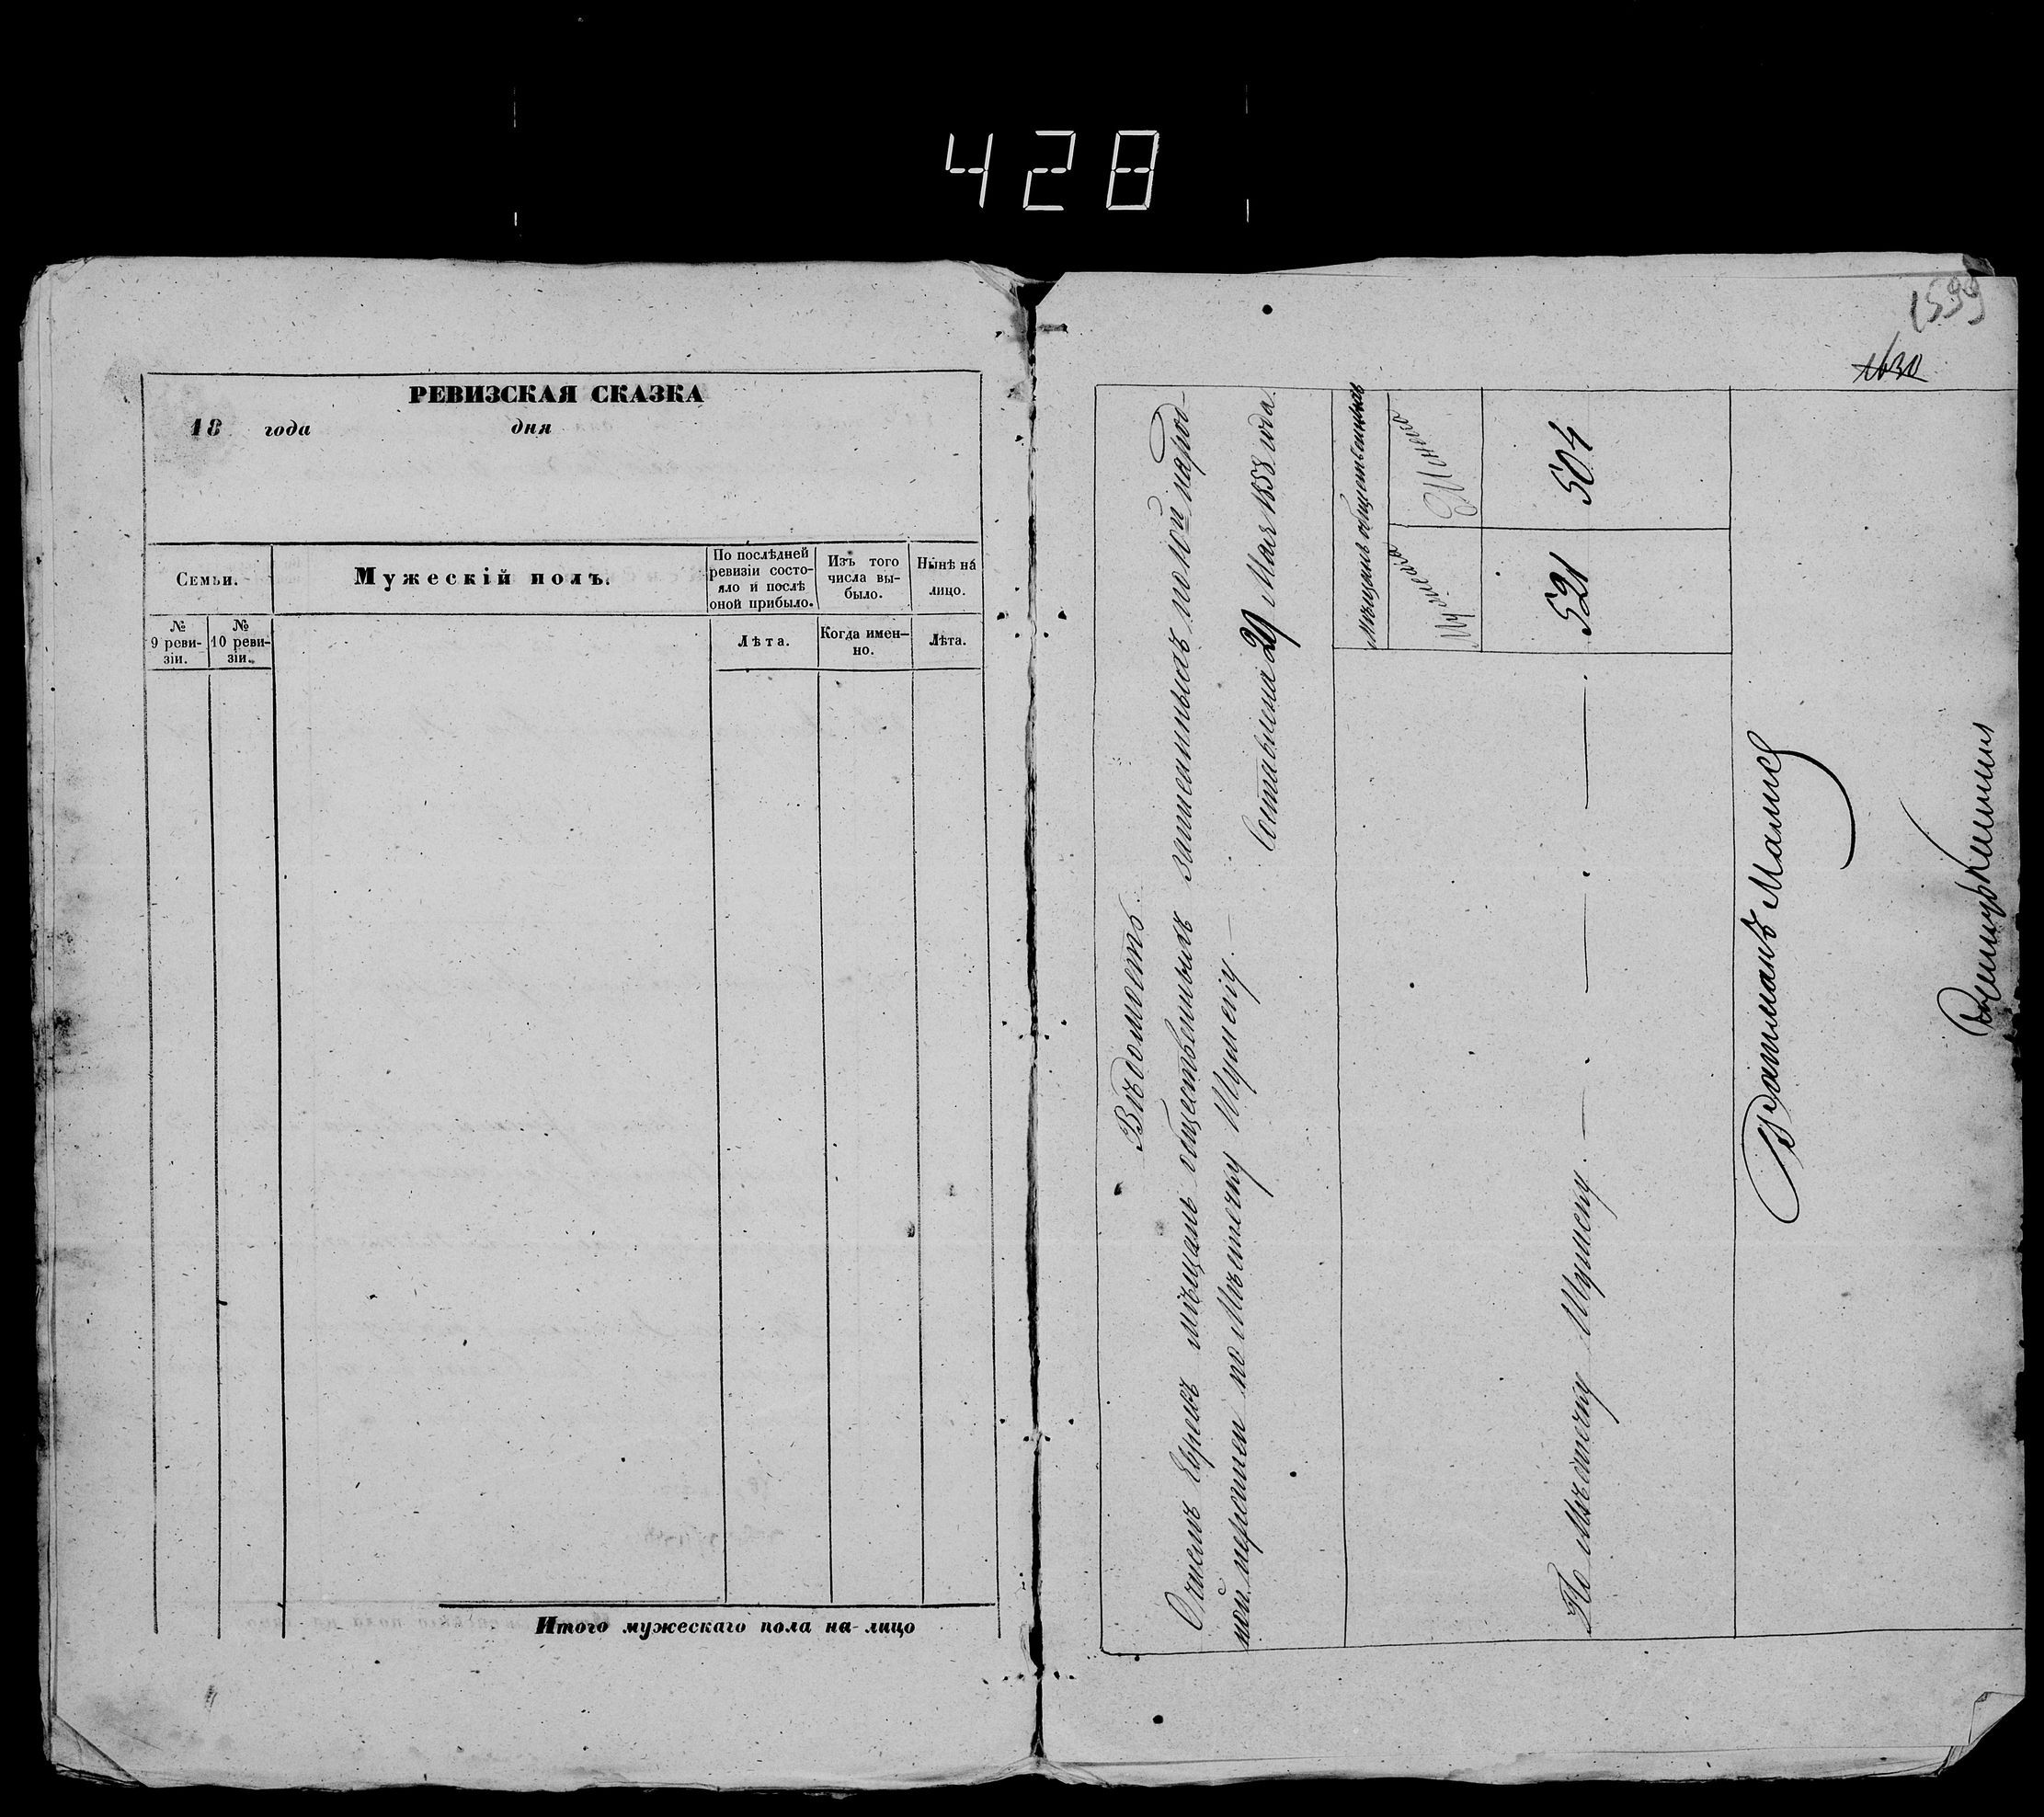 428
РЕВИЗСКАЯ СКАЗКА
18 года дня
Семьи.
Мужескій полъ.
По послѣдней ревизіи состояло и послѣ оной прибыло.
Изъ того числа выбыло.
Нынѣ на лицо.
№ 9 ревизіи.
№ 10 ревизіи.
Лѣта.
Когда именно.
Лѣта.
Итого мужескаго пола на-лицо
1599
1630
Вѣдомость.
О числѣ Евреевъ мѣщанъ общественныхъ записанныхъ по 10й народ-
ной переписи по Мѣстечку Шумску.
Составлена 29 Мая 1858 года.
Мѣщанъ общественныхъ
Мужеска
Женска
По Мѣстечку Шумску.
521
504